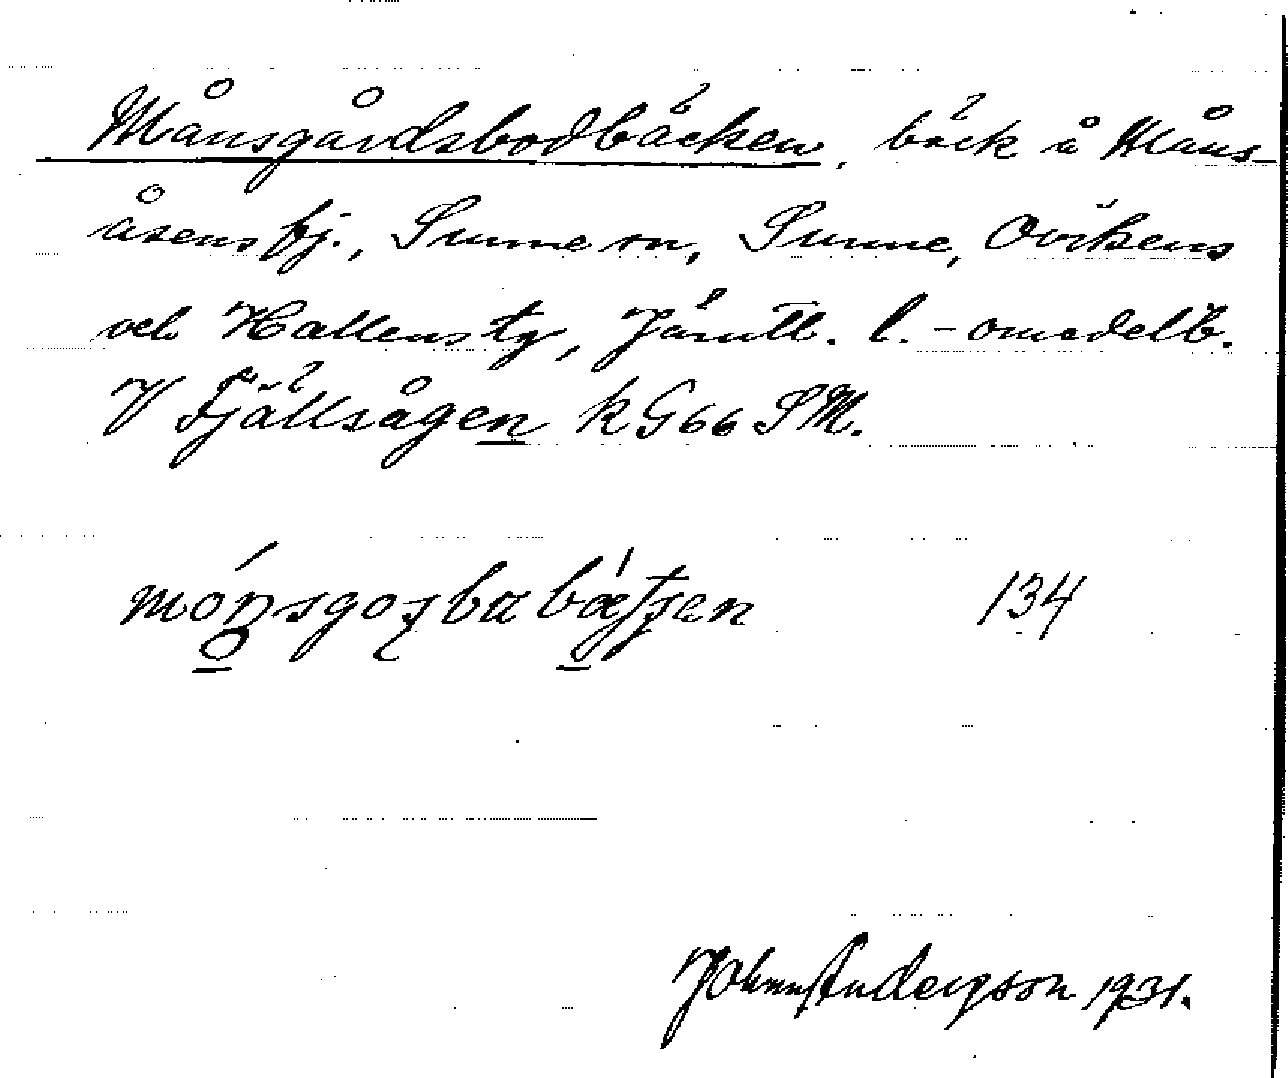 Månsgårdsbodbäcken, bäck å Måns-
åsens fj., Sunne sn, Sunne, Ovikens
och Hallens tg, Jämtl. l. - omedelb.
V Fjällsågen k G66 SM.
134
John Anderson 1931.